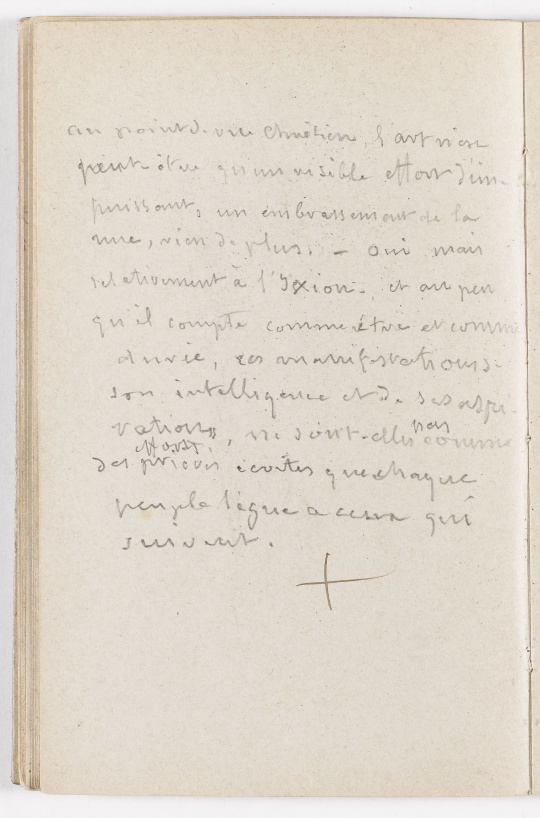 au point de vue Chrétien, l'art n'est
peut être qu'un risible effort d'im-
puissant, un embrassement de la
nue, rien de plus. – oui mais
relativement à l'Ixion. et au peu
qu'il compte comme être et comme
durée, ces manifestations de
son intelligence et de ses aspi-
rations, ne sont-elles pas comme
des prières écrites que chaque
peuple lègue à ceux qui
suivent.